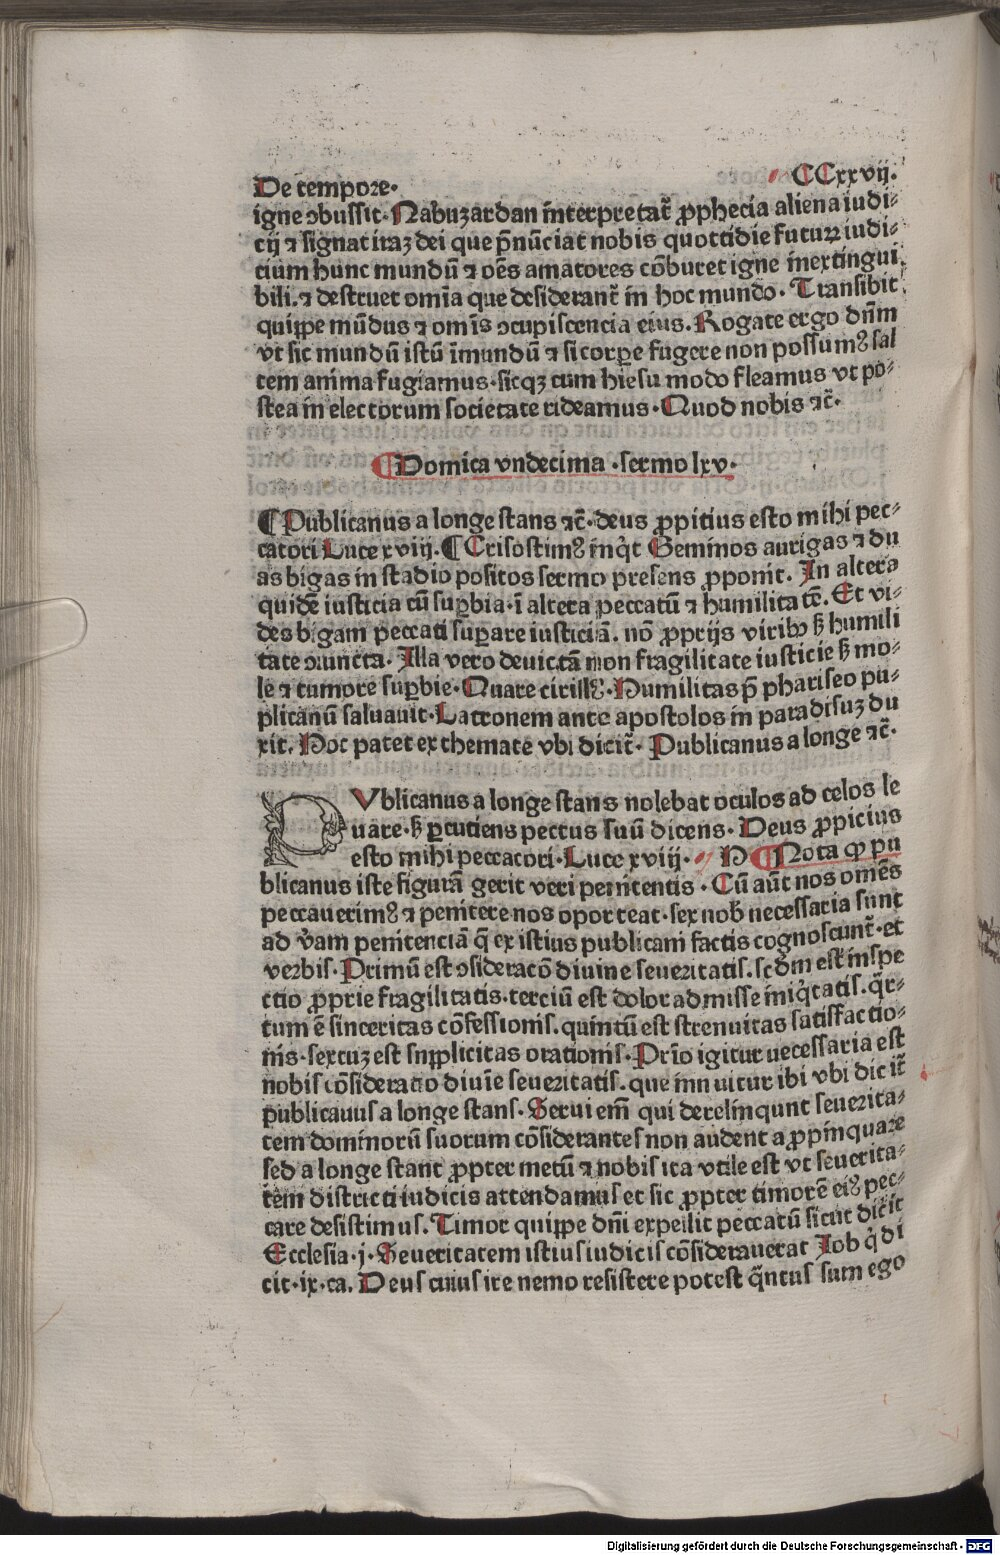 De tempore. CCxxvij.
igne ↄbussit. Nabuzardan īnterpretat̄ ꝓphecia aliena iudi⸗
cij ⁊ signat iraʒ dei que p̄nūciat nobis quottidie futuꝝ iudi⸗
cium hunc mundū ⁊ oēs amatores cōburet igne inextingui
bili. ⁊ destruet omīa que desiderant̄ in hoc mundo. Transibit
quippe mūdus ⁊ omīs ↄcupiscencia eius. Rogate ergo dn̄m
vt sic mundū istū īmundū ⁊ si corꝑe fugere non possumꝰ sal
tem anima fugiamus. sicqʒ cum hiesu modo fleamus vt po⸗
stea in electorum societate rideamus. Quod nobis ⁊c̄.
¶Domica vndecima .sermo lxv.
¶Publicanus a longe stans ⁊c̄. deus ꝓpitius esto mihi pec⸗
catori Luce xviij. ¶Crisostimꝰ inq̇t Geminos aurigas ⁊ du
as bigas in stadio positos sermo presens ꝓponit. In altera
quidē iusticia cū suꝑbia. ī altera peccatū ⁊ humilitatē. Et vi⸗
des bigam peccati suꝑare iusticiā. nō ꝓprijs viribꝰ ß humili
tate ↄiuncta. Illa vero deuictā non fragilitate iusticie ß mo⸗
le ⁊ tumore suꝑbie. Quare cirillꝰ. Humilitas p̄ phariseo pu⸗
plicanū saluauit. Latronem ante apostolos in paradisuʒ du
xit. Hoc patet ex themate vbi dicit̄. Publicanus a longe ⁊c̄.
PVblicanus a longe stans nolebat oculos ad celos le
uare. ß ꝑcutiens pectus suū dicens. Deus ꝓpicius
esto mihi peccatori. Luce xviij. H ¶Nota ꝙ pu
blicanus iste figurā gerit veri penitentis. Cū aūt nos omēs
peccauerimꝰ ⁊ penitere nos oporteat. sex nob̄ necessaria sunt
ad v̄am penitenciā q̄ ex istius publicani factis cognoscunt̄. et
verbis. Primū est ↄsideracō diuine seueritatis. scdm est inspe
ctio ꝓprie fragilitatis. terciū est dolor admisse iniq̇tatis. q̄r⸗
tum ē sinceritas cōfessionis. quintū est strenuitas satisfactio⸗
nis. sextuʒ est snpplicitas orationis. Prīo igitur uecessaria est
nobis cōsideratio diuīe seueritatis. que inn uitur ibi vbi dicit̄
publicauus a longe stans. Serui em̄ qui derelinqunt seuerita⸗
tem dominorū suorum cōsiderantes non audent a ꝓpinquare
sed a longe stant ꝓpter metū ⁊ nobis ita vtile est vt seuerita⸗
tem districti iudicis attendamus et sic ꝓpter timorē eiꝰ pec⸗
care desistimus. Timor quippe dn̄i expellit peccatū sicut dicit̄
Ecclesia .j. Seueritatem istius iudicis cōsiderauerat Iob q̇ di
cit .ix. ca. Deus cuius ire nemo resistere potest q̄ntus sum ego
Digitalisierung gefördert durch die Deutsche Forschungsgemeinschaft - DFG